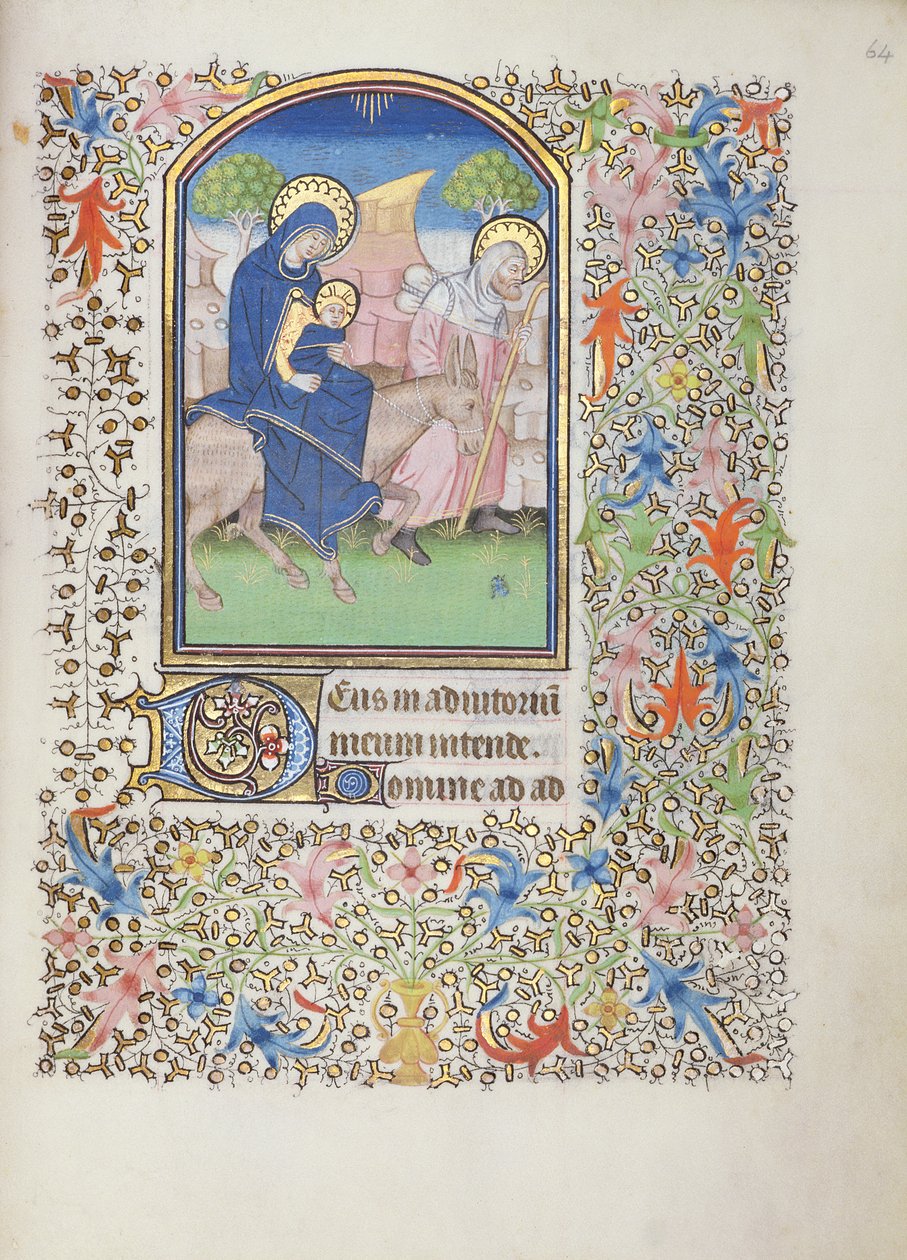 64
Deus in adiutoriū
meum intende
Domine ad ad